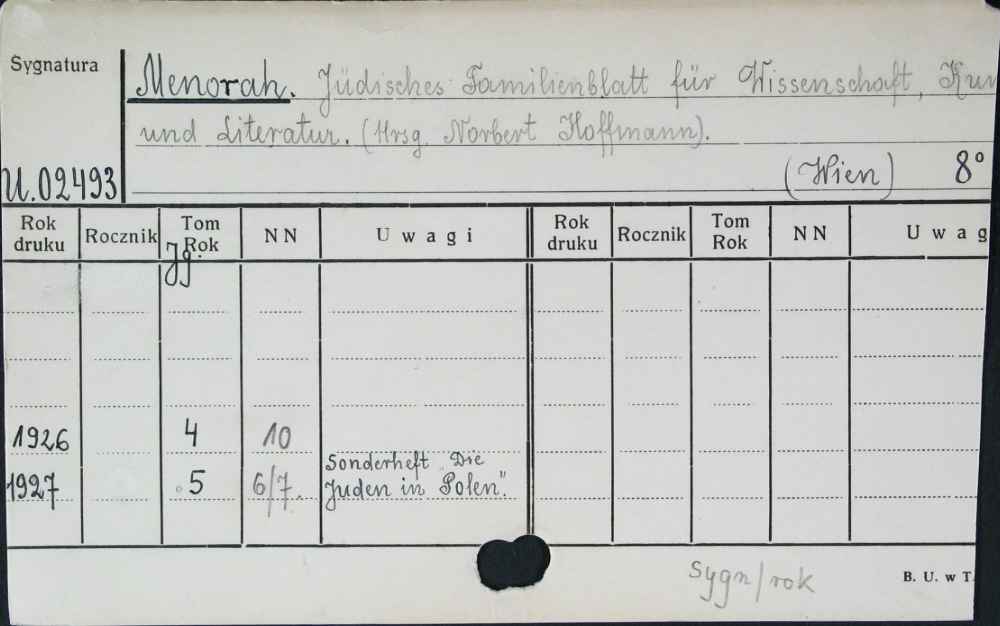 Sygnatura
Menorah. Jüdisches Familienblatt für Wissenschaft, Kun
und Literatur. (Hrsg. Norbert Hoffmann).
U.02493
(Wien) 8°
Rok druku Rocznik Tom Rok NN Uwagi Rok druku Rocznik Tom Rok NN Uwag
Jg.
1926 4 10
1927 5 6/7. Sonderheft „Die
Juden in Polen".
sygn/rok
B. U. w T.